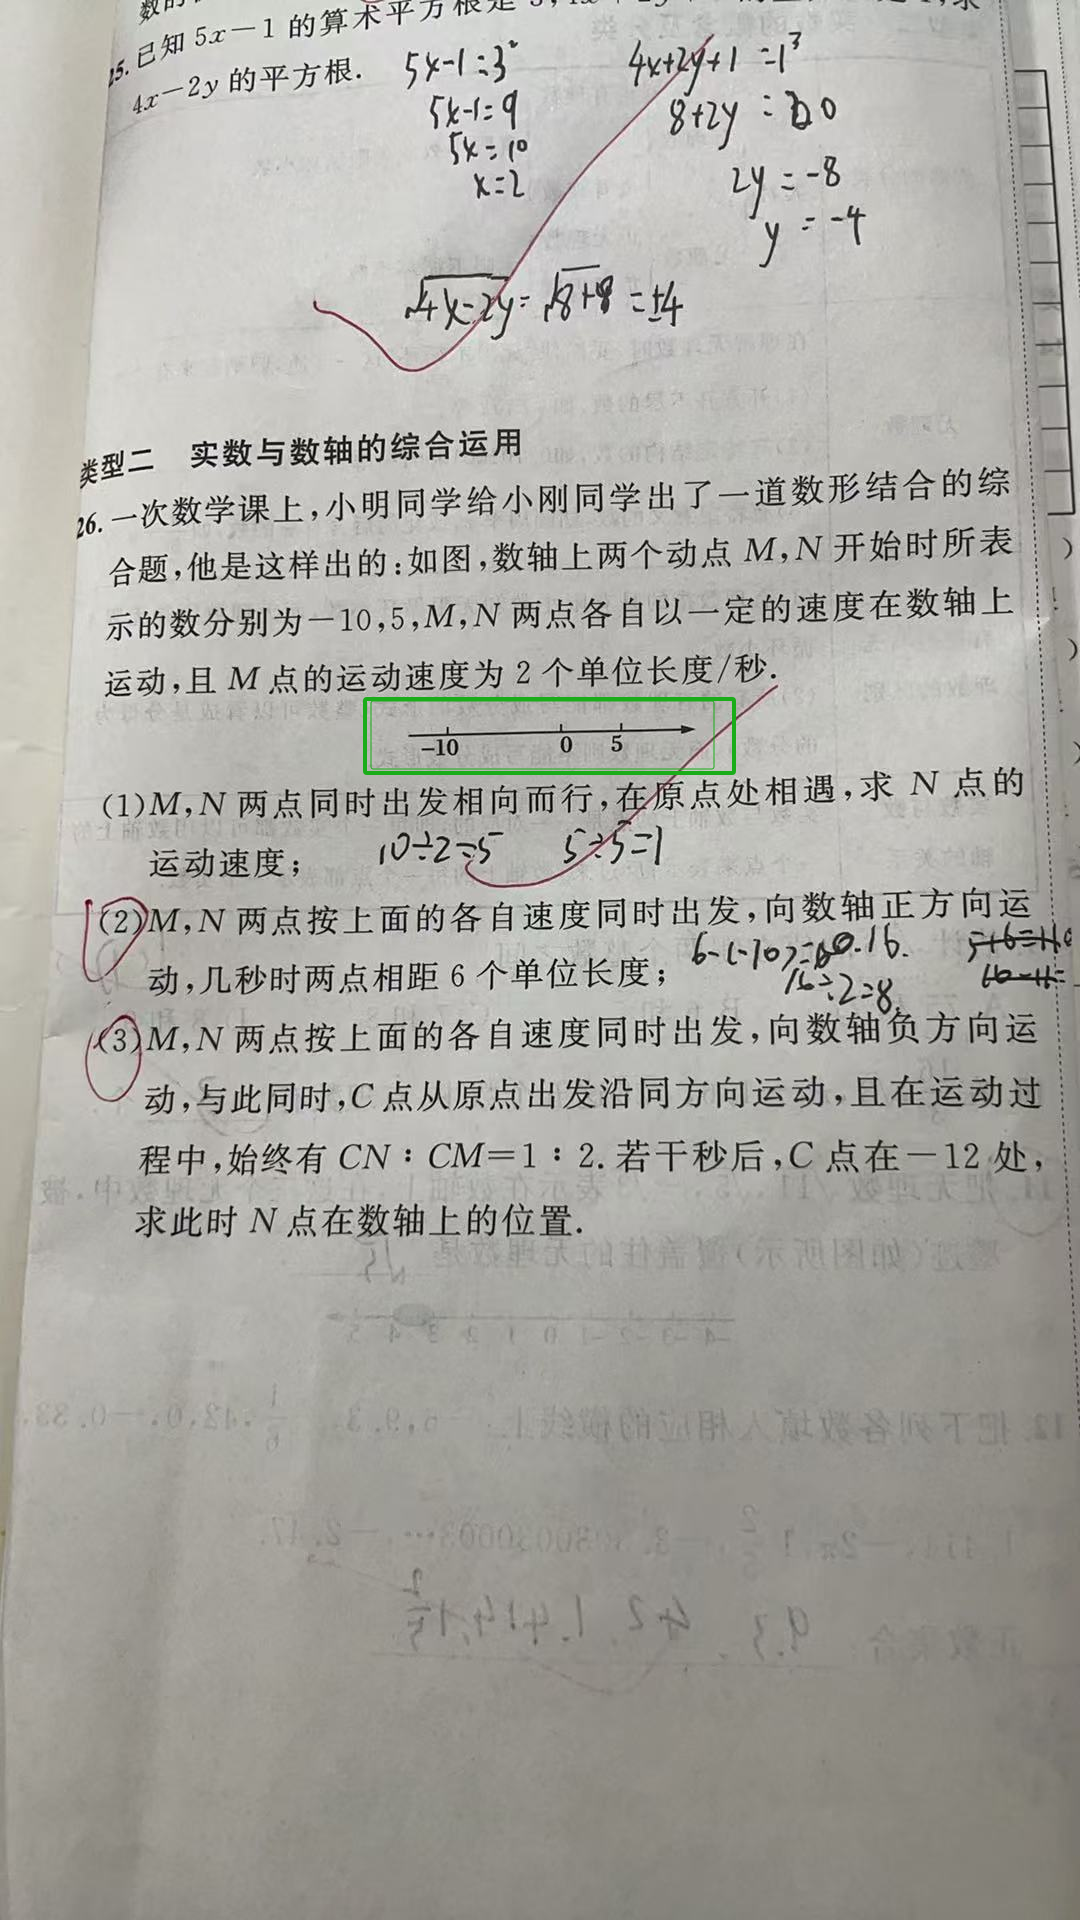 25.已知5x-1的算术平方根是3,4x+2y
4x-2y的平方根.
5x-1=3²
5x-1=9
5x=10
x=2
4x+2y+1=1³
8+2y=0
2y=-8
y=-4
√4x-2y=√8+8=±4
类型二 实数与数轴的综合运用
26.一次数学课上,小明同学给小刚同学出了一道数形结合的综
合题,他是这样出的:如图,数轴上两个动点M,N开始时所表
示的数分别为-10,5,M,N两点各自以一定的速度在数轴上
运动,且M点的运动速度为2个单位长度/秒.
-10 0 5
(1)M,N两点同时出发相向而行,在原点处相遇,求N点的
运动速度;
10÷2=5 5÷5=1
(2)M,N两点按上面的各自速度同时出发,向数轴正方向运
动,几秒时两点相距6个单位长度;
6-(-10)=16.
16÷2=8
5+6=11
(3)M,N两点按上面的各自速度同时出发,向数轴负方向运
动,与此同时,C点从原点出发沿同方向运动,且在运动过
程中,始终有CN:CM=1:2.若干秒后,C点在-12处,
求此时N点在数轴上的位置.